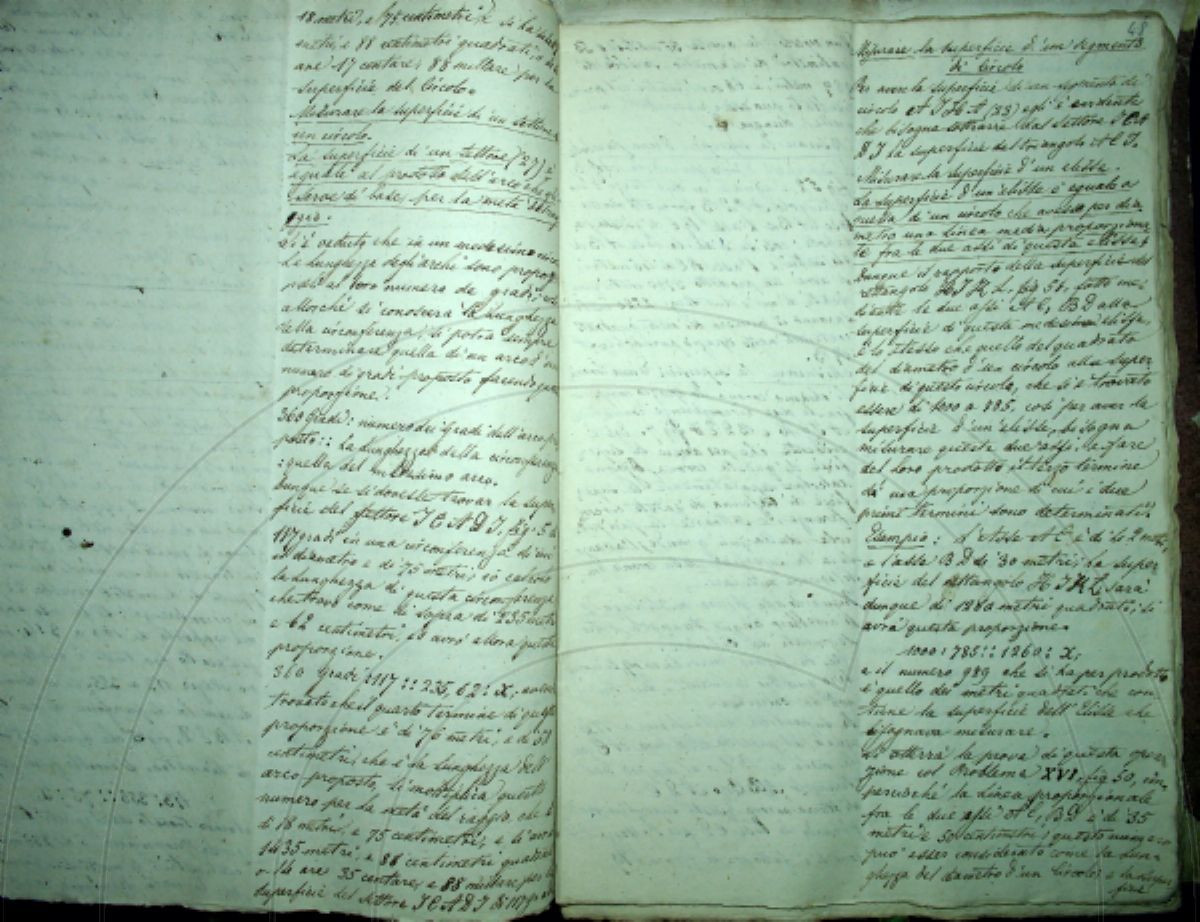 18 metri, e 75 centimetri, si ha
metri, e 88 centimetri quadrati, o
are 17 centare, 88 millare per la
superficie del Circolo.
Misurare la superficie di un settore
un circolo.
La superficie di un settore (27) è
eguale al prodotto dell'arco che gli
serve di base, per la metà del raggio.
Si è veduto che in un medesimo
le lunghezze degli archi sono
al loro numero de gradi;
allorchè si conoscerà la lunghezza
della circonferenza, si potrà sempre
determinare quella di un arco d'un
numero di gradi proposto facendo questa
proporzione.
360 Gradi: numero dei gradi dell'arco
posto :: la lunghezza della circonferenza
: quella del medesimo arco.
Dunque se si dovesse trovar la super
ficie del settore I C A D I, fig. 5
117 gradi in una circonferenza di cui
il diametro e di 75 metri, io calcolo
la lunghezza di questa circonferenza
che trovo come di sopra di 235 metri
e 62 centimetri, ed avrò allora questa
proporzione.
360 Gradi: 117 :: 235, 62 : X;
trovato che il quarto termine di questa
proporzione è di 76 metri, e di 58
centimetri, che è la lunghezza dell'
arco proposto, si moltiplica questo
numero per la metà del raggio che è
di 18 metri, e 75 centimetri, e si
1435 metri, e 88 centimetri quadrati
o 14 are 35 centare, e 88 millare per la
superficie del settore I C A D I di 117
48
Misurare la superficie d'un segmento
di Circolo
Per aver la superficie di un segmento di
circolo A I H A (33) egli è evidente
che bisogna sottrarre dal settore I C A
D I la superficie del triangolo A C I.
Misurare la superficie d'un elisse.
La superficie d'un elisse è eguale a
quella di un circolo che avesse per dia
metro una linea media proporziona
le fra le due assi di questa elisse;
Dunque il rapporto della superficie del
rettangolo H I K L fig 51, fatto me
diante le due assi A C, B D alla
superficie di questa medesima elisse,
è lo stesso che quello del quadrato
del diametro d'un circolo alla super
ficie di questo circolo, che si è trovato
essere di 1000 a 785, così per aver la
superficie d'un elisse, bisogna
misurare queste due assi, e fare
del loro prodotto il terzo termine
di una proporzione di cui i due
primi termini sono determinati.
Esempio: L'asse A C è di 42 metri,
e l'asse B D di 30 metri; la super
ficie del rettangolo H I K L sarà
dunque di 1260 metri quadrati, si
avrà questa proporzione.
1000 : 785 :: 1260 : X;
e il numero 989 che si ha per prodotto
è quello dei metri quadrati che con
tiene la superficie dell'Elisse che
bisognava misurare.
Si otterrà la prova di questa opera
zione col Problema XVI. fig 50, im
perocchè la linea proporzionale
fra le due assi A C, B D è di 35
metri e 50 centimetri; questo numero
può esser considerato come la lun
ghezza del diametro d'un Circolo e la super
ficie